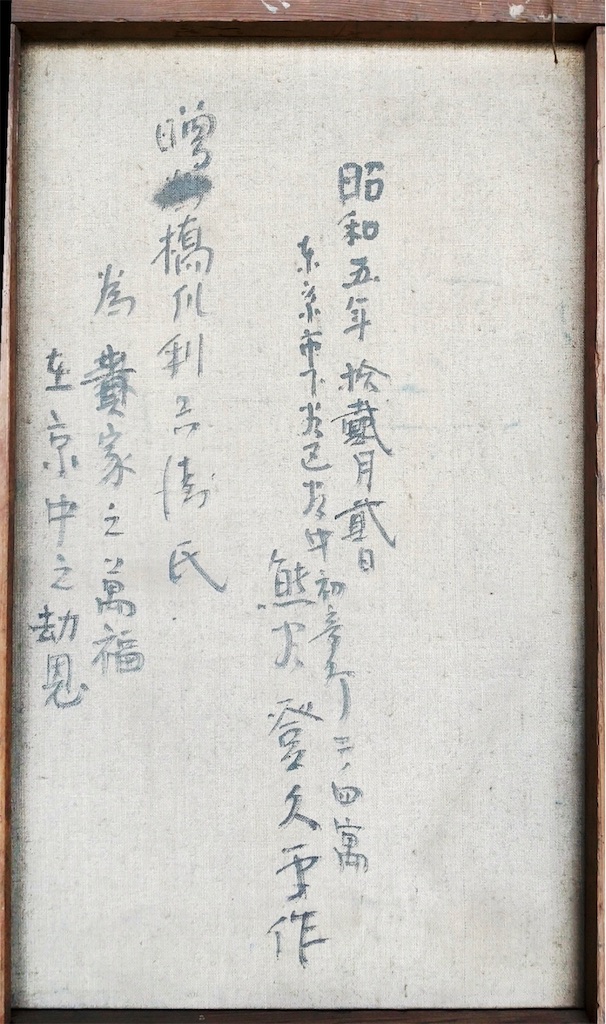 昭和五年拾貳月貳日
东京市下谷区谷中初音町三ノ四
熊谷登久平作
贈 橋爪利 氏
為貴家之萬福
在京中之 恩